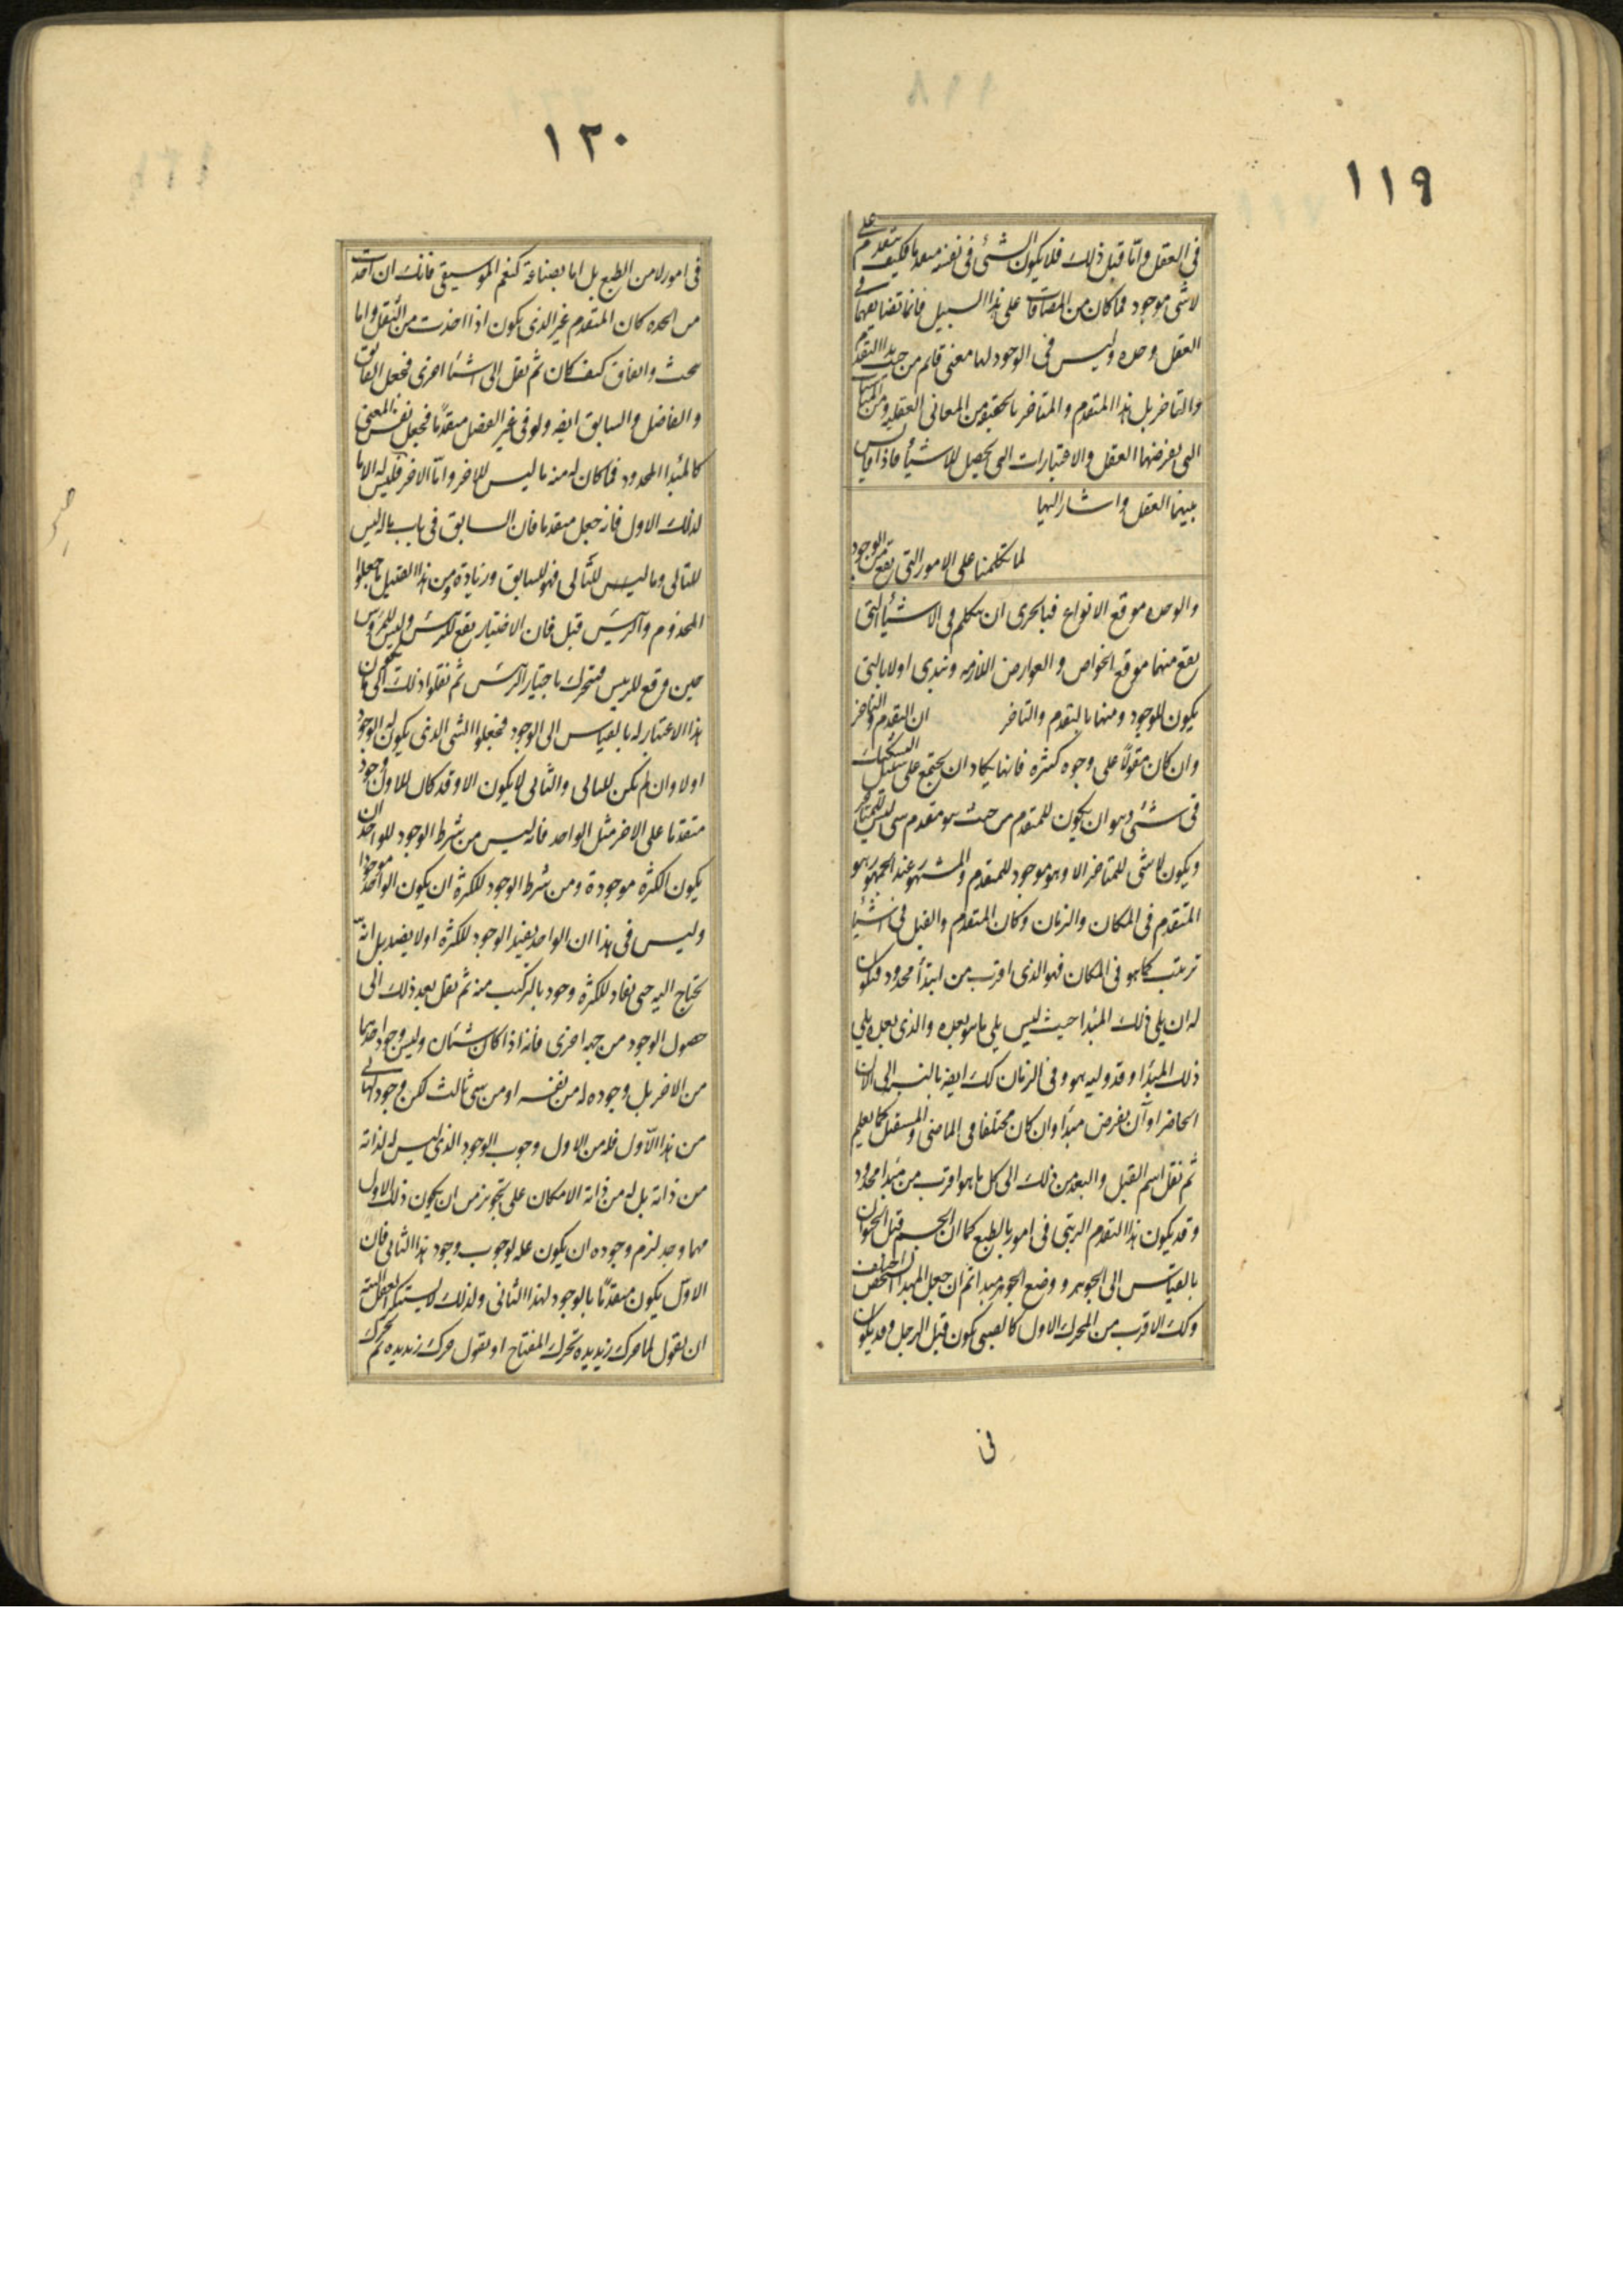 ١١٩
في العقل واما قبل ذلك فلا يكون الشئ في نفسه متقدما فكيف يتقدم على
لا شئ موجود فما كان من المضافات على هذا السبيل فانما تضايفهما في
العقل وحده وليس في الوجود لها معنى قايم من حيث هذا التقدم
والتاخر بل هذا المتقدم والمتاخر بالحقيقة من المعاني العقلية ومن المناسبات
التي يفرضها العقل والاعتبارات التي تحصل للاشيأ اذا قايس
بينهما العقل واشار اليهما
لما تكلمنا على الامور التي تقع من الوجود
والوحده موقع الانواع فبالحرى ان نتكلم في الاشيأ التي
يقع منهما موقع الخواص والعوارض اللازمه ونبدى اولا بالتي
يكون للوجود ومنها بالتقدم والتاخر ان التقدم والتاخر
وان كان مقولاً على وجوه كثيره فانها يكاد ان يجتمع على سبيل التشكيك
في شئ وهو ان يكون للمتقدم من حيث هو متقدم شى ليس للمتاخر
ويكون لا شئ للمتاخر الا وهو موجود للمتقدم والمشهور عند الجمهور هو
المتقدم في المكان والزمان وكان المتقدم والقبل في اشيأ
ترتيب كما هو في المكان فهو الذى اقرب من ابتدأ محدود فيكون
له ان يلي ذلك المبدا حيث ليس يلي ما هو بعده والذى بعده يلي
ذلك المبدا وقد وليه هو وفي الزمان كك ايضه بالنسبه الى الان
الحاضر او آن يفرض مبدأ وان كان مختلفا في الماضى والمستقبل كما يعلم
ثم نقل اسم القبل والبعد من ذلك الى كل ما هو اقرب من مبدا محدود
وقد يكون هذا التقدم الرتبى في امور بالطبع كما ان الجسم قبل الحيوان
بالقياس الى الجوهر ووضع الجوهر مبدا ثم ان جعل المبدا الشخص اختلف
وكك الاقرب من المحرك الاول كالصبى يكون قبل الرجل وقد يكون
في
١٢٠
في امور لا من الطبع بل اما بصناعة كنغم الموسيقى فانك ان اخذت
من الحده كان المتقدم غير الذى يكون اذا اخذت من الثقل واما
بحث واتفاق كيف كان ثم نقل الى اشيأ اخرى فجعل الفائق
والفاضل والسابق ايضه ولو في غير الفضل متقدماً فجعل نفس المعنى
كالمبدا المحدود فما كان له منه ما ليس للاخر واما الاخر فليس له الا ما
لذلك الاول فانه جعل متقدما فان السابق في باب ما له ليس
للتالى وما ليس للثانى فهو للسابق وزيادة ومن هذا القبيل ما جعلوا
المخدوم والرئيس قبل فان الاختيار يقع للرئيس وليس للمرؤس
حين وقع للرئيس فيتحرك باختيار الرئيس ثم نقلوا ذلك الى ما يكون
هذا الاعتبار له بالقياس الى الوجود فجعلوا الشى الذى يكون له الوجود
اولا وان لم يكن للثانى والثانى لا يكون الا وقد كان للاول وجود
متقدما على الاخر مثل الواحد فانه ليس من شرط الوجود للواحد ان
يكون الكثره موجودة ومن شرط الوجود للكثرة ان يكون الواحد موجودا
وليس في هذا ان الواحد يفيد الوجود للكثره او لا يفيد بل انه
يحتاج اليه حتى يفاد للكثرة وجود بالتركيب منه ثم نقل بعد ذلك الى
حصول الوجود من جهه اخرى فانه اذا كان شيئان وليس وجود احدهما
من الاخر بل وجوده له من نفسه او من شى ثالث لكن وجود الثانى
من هذا الاول فله من الاول وجوب الوجود الذى ليس له لذاته
من ذاته بل له من ذاته الامكان على تجويز من ان يكون ذلك الاول
مهما وجد لزم وجوده ان يكون علة لوجوب وجود هذا الثانى فان
الاول يكون متقدماً بالوجود لهذا الثانى ولذلك لا يستنكر العقل البتة
ان نقول لما حرك زيد يده تحرك المفتاح او نقول حرك زيد يده ثم تحرك